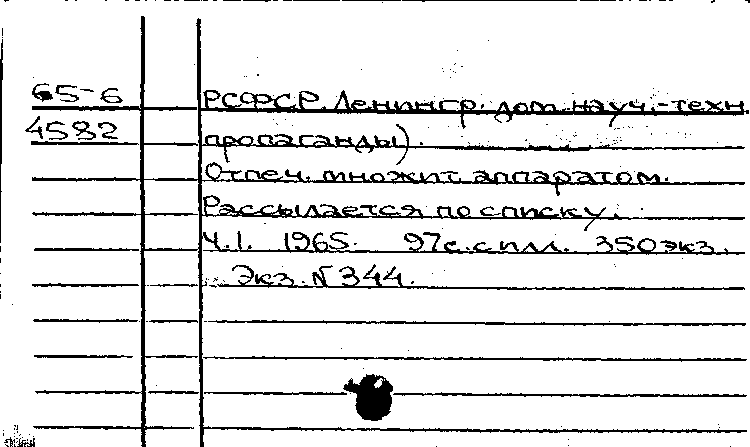 65-6 РСФСР. Ленингр. дом науч.-техн.
4582 пропаганды).
Отпеч. множит. аппаратом.
Рассылается по списку.
Ч.1. 1965. 97с. с илл. 350 экз.
Экз. № 344.